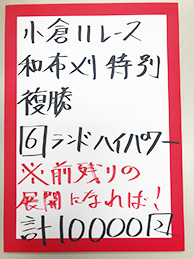 小倉11レース
和布刈特別
複勝
6 ランドハイパワー
※前残りの
展開になれば!
計10000円